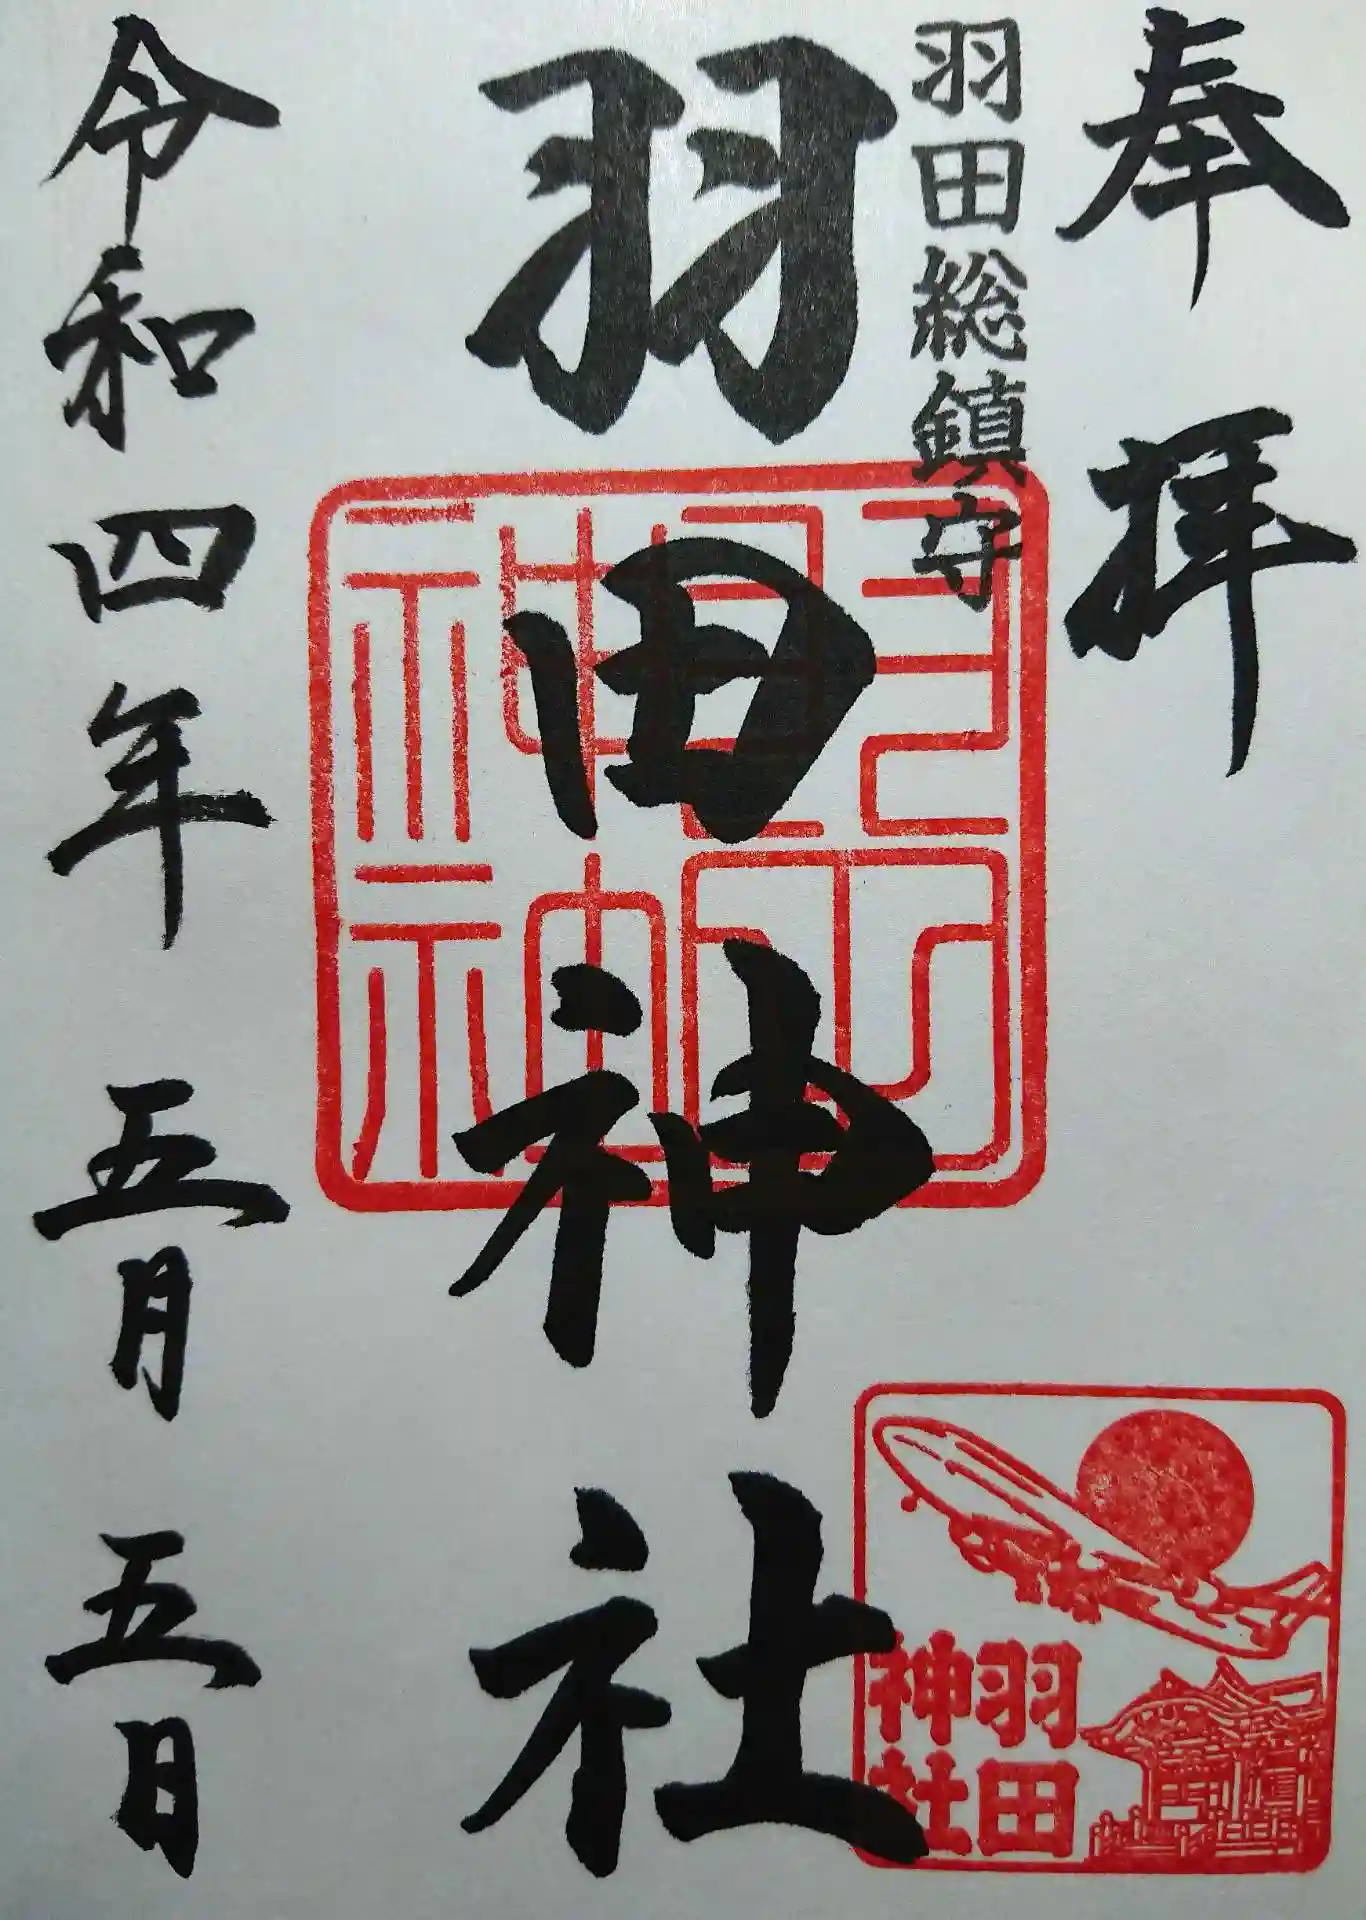 奉拝
羽田総鎮守
羽田神社
令和四年 五月 五日
羽田
神社